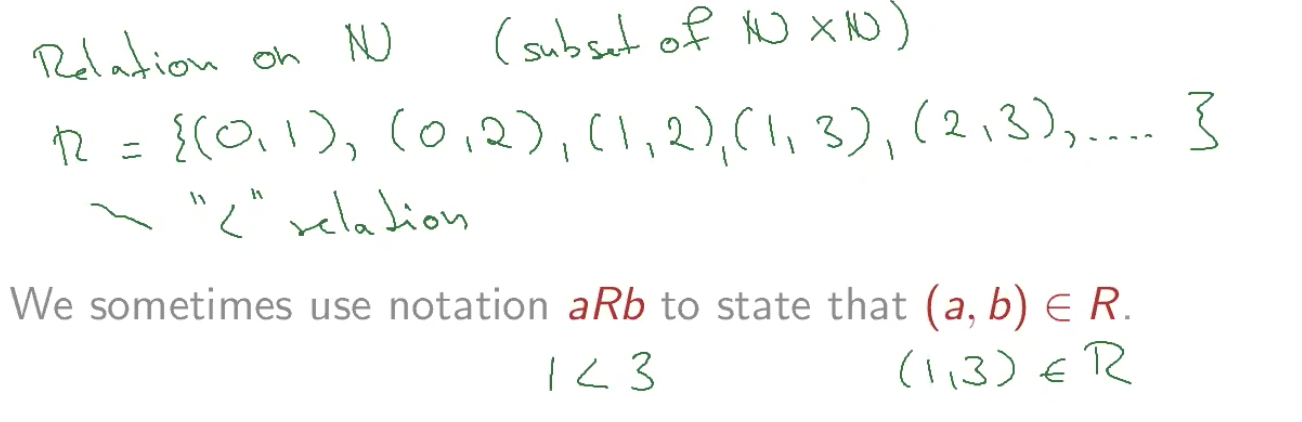 Relation on ℕ (subset of ℕ × ℕ)
R = {(0,1), (0,2), (1,2), (1,3), (2,3), .... }
~ "<" relation
We sometimes use notation aRb to state that (a, b) ∈ R.
1 < 3 (1,3) ∈ R